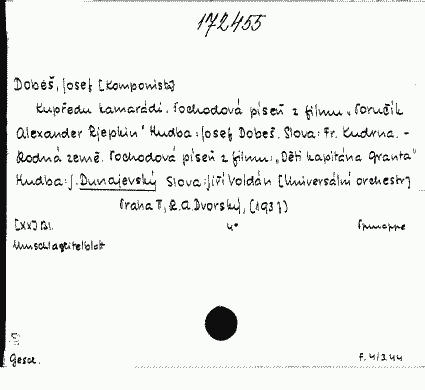 172455
Dobeš, Josef [Komponist]
Kupředu kamarádi. Pochodová píseň z filmu „Poručík
Alexander Rjepkin" Hudba: Josef Dobeš. Slova: Fr. Kudrna. -
Rodná země. Pochodová píseň z filmu: „Děti kapitána Granta"
Hudba: J. Dunajevský Slova: Jiří Voldán [Universální orchestr]
Praha I, R.A. Dvorský, [193?]
[XX] Bl. 4°
Umschlagtitelblatt
Gesch. F. 4/244